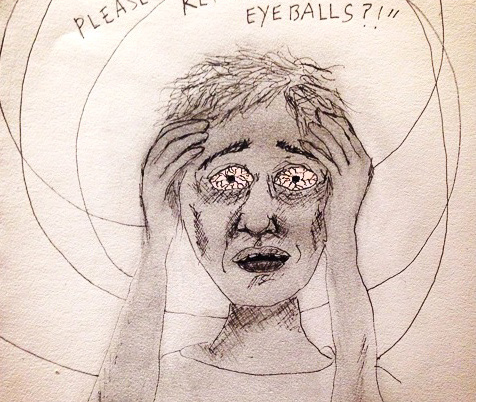 PLEASE
EYEBALLS?!"